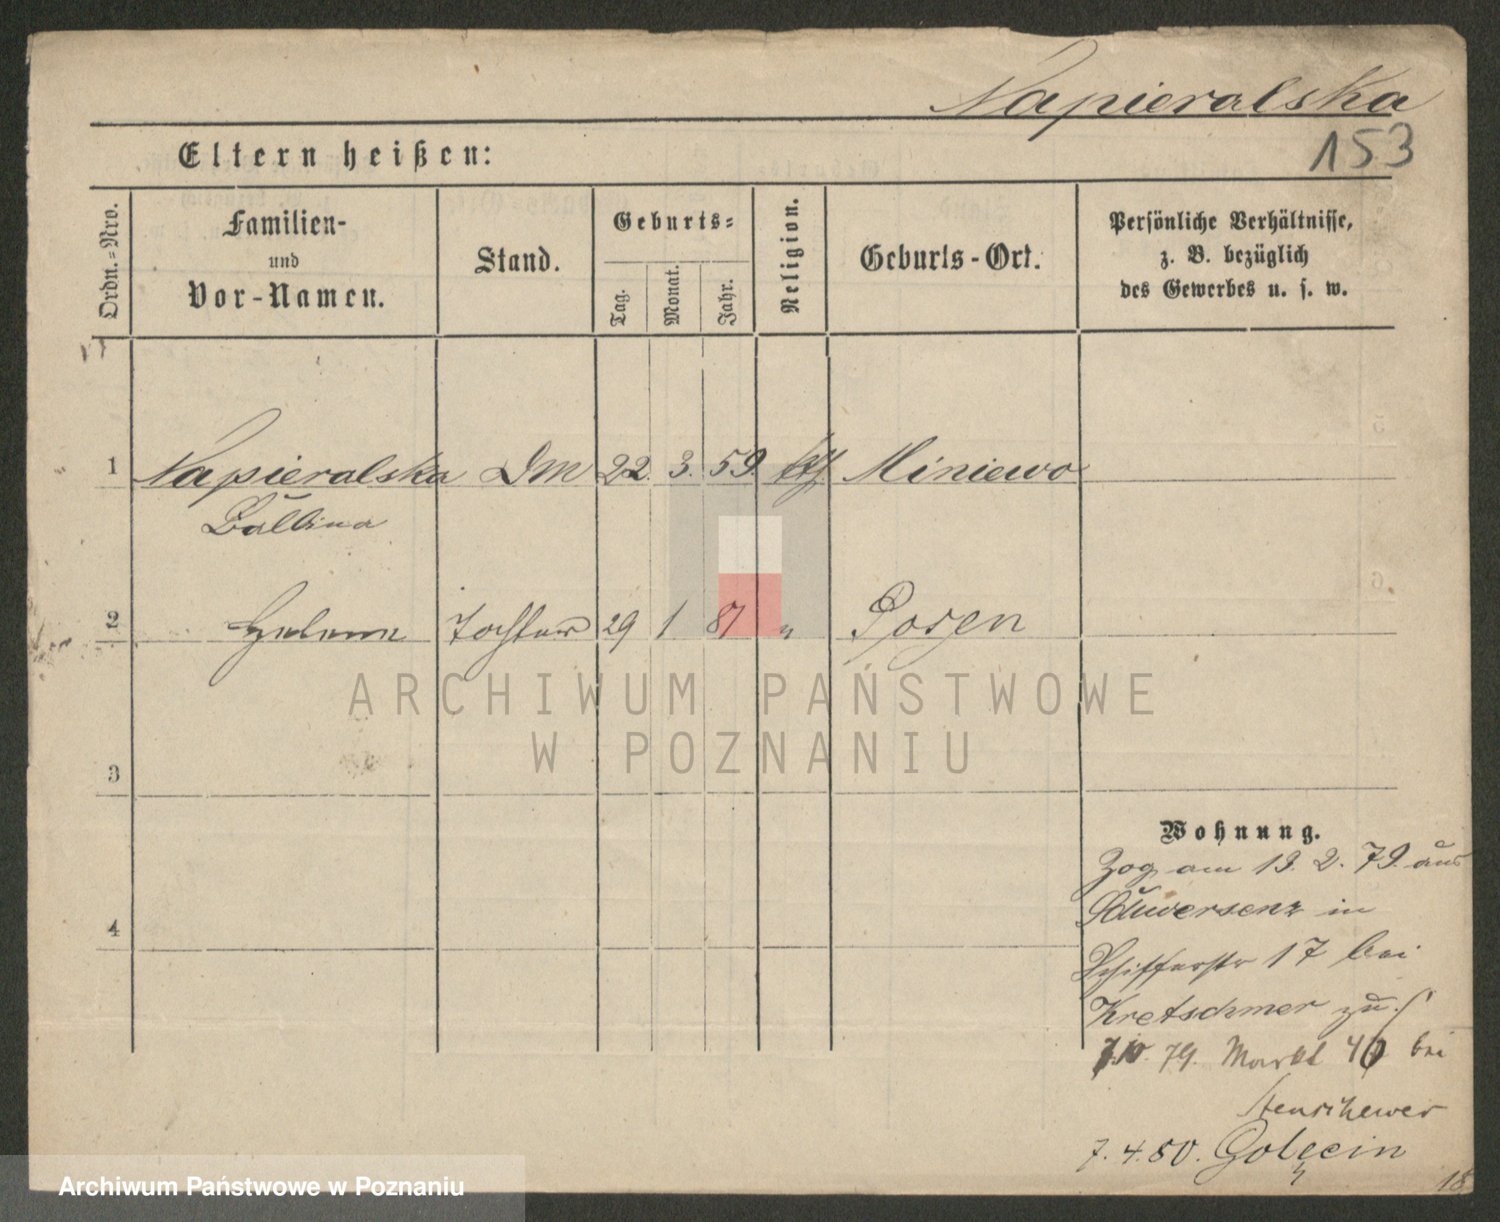 Napieralska
153
Eltern heißen:
Ordn.-Nro.
Familien-
und
Vor-Namen.
Stand.
Geburts-
Tag.
Monat.
Jahr.
Religion.
Geburts-Ort.
Persönliche Verhältnisse,
z. B. bezüglich
des Gewerbes u. s. w.
1 Napieralska DM 22. 3. 59. kth Miniewo
Balbina
2 Helene Tochter 29 1 81 " Posen
ARCHIWUM PAŃSTWOWE
W POZNANIU
3
Wohnung.
Zog am 13. 2. 79. aus
Schwersenz in
4
Schifferstr 17 bei
Kretschmer zu.
7.10. 79. Markt 40 bei
7. 4. 80. Golęcin
18
Archiwum Państwowe w Poznaniu